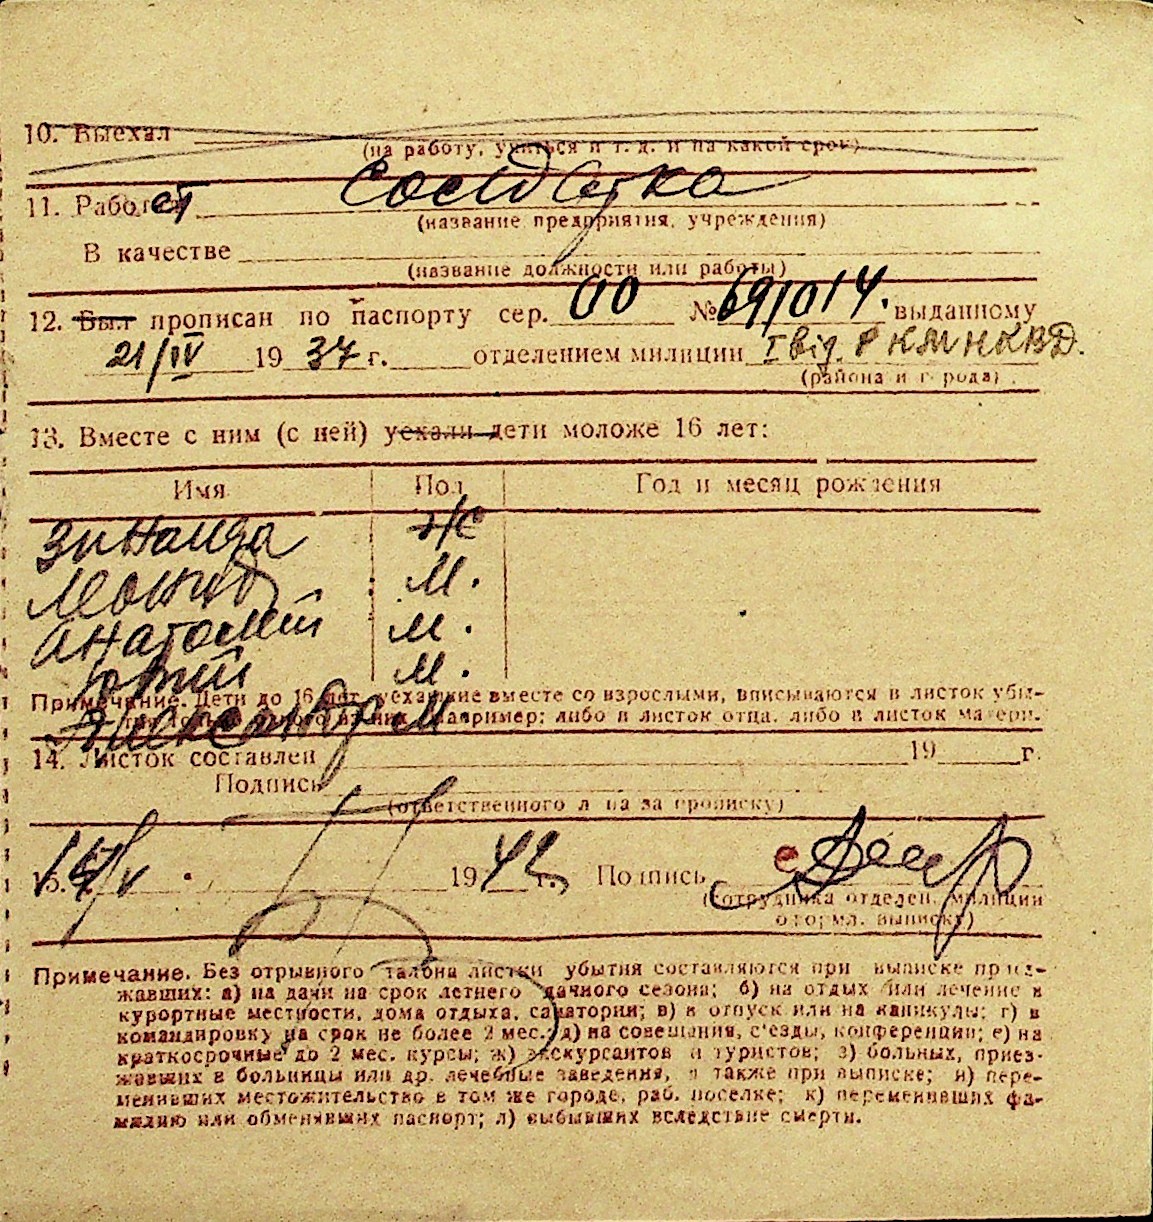 10. Выехал
(на работу, учиться и т. д. и на какой срок)
11. Работает
(название предприятия, учреждения)
В качестве
(название должности или работы)
12. Был прописан по паспорту сер. № 691014. выданному
21/IV 1937 г. отделением милиции I від. РКМ НКВД.
(района и города)
13. Вместе с ним (с ней) уехали дети моложе 16 лет:
Имя Пол Год и месяц рождения
Зинаида Ж
Леонид М.
Анатолий М.
Юрий М.
Примечание. Дети до 16 лет, уехавшие вместе со взрослыми, вписываются в листок убы-
например: либо в листок отца, либо в листок матери.
Александр М
14. Листок составлен 19 г.
Подпись
(ответственного лица за прописку)
15. 19 42 г. Подпись
(сотрудника отделен. милиции
оформл. выписку)
Примечание. Без отрывного талона листки убытия составляются при выписке приез-
жавших: а) на дачи на срок летнего дачного сезона; б) на отдых или лечение в
курортные местности, дома отдыха, санатории; в) в отпуск или на каникулы; г) в
командировку на срок не более 2 мес.; д) на совещания, с'езды, конференции; е) на
краткосрочные до 2 мес. курсы; ж) экскурсантов и туристов; з) больных, приез-
жавших в больницы или др. лечебные заведения, а также при выписке; и) пере-
менивших местожительство в том же городе, раб. поселке; к) переменивших фа-
милию или обменявших паспорт; л) выбывших вследствие смерти.